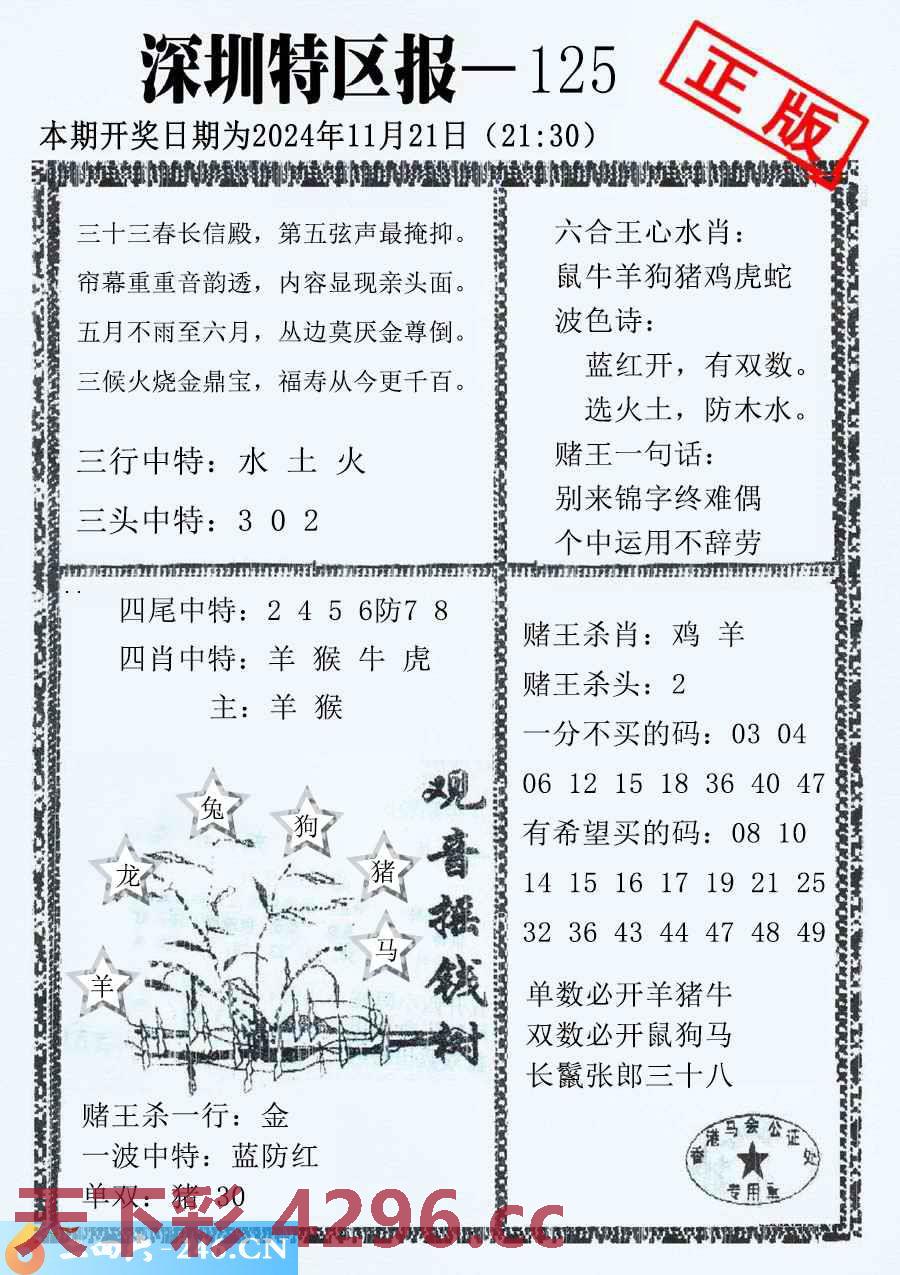 深圳特区报—125
正版
本期开奖日期为2024年11月21日（21:30）
三十三春长信殿，第五弦声最掩抑。
帘幕重重音韵透，内容显现亲头面。
五月不雨至六月，丛边莫厌金尊倒。
三候火烧金鼎宝，福寿从今更千百。
三行中特：水 土 火
三头中特：3 0 2
六合王心水肖：
鼠牛羊狗猪鸡虎蛇
波色诗：
蓝红开，有双数。
选火土，防木水。
赌王一句话：
别来锦字终难偶
个中运用不辞劳
四尾中特：2 4 5 6防7 8
四肖中特：羊 猴 牛 虎
主：羊 猴
兔
狗
龙
猪
马
羊
观音摇钱树
赌王杀一行：金
一波中特：蓝防红
单双：猪 30
赌王杀肖：鸡 羊
赌王杀头：2
一分不买的码：03 04
06 12 15 18 36 40 47
有希望买的码：08 10
14 15 16 17 19 21 25
32 36 43 44 47 48 49
单数必开羊猪牛
双数必开鼠狗马
长鬣张郎三十八
香港马会公证处
专用章
天下彩 4296.cc
246.CN